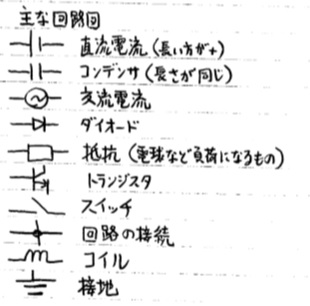 主な回路図
直流電流（長い方が+）
コンデンサ（長さが同じ）
交流電流
ダイオード
抵抗（電球など負荷になるもの）
トランジスタ
スイッチ
回路の接続
コイル
接地